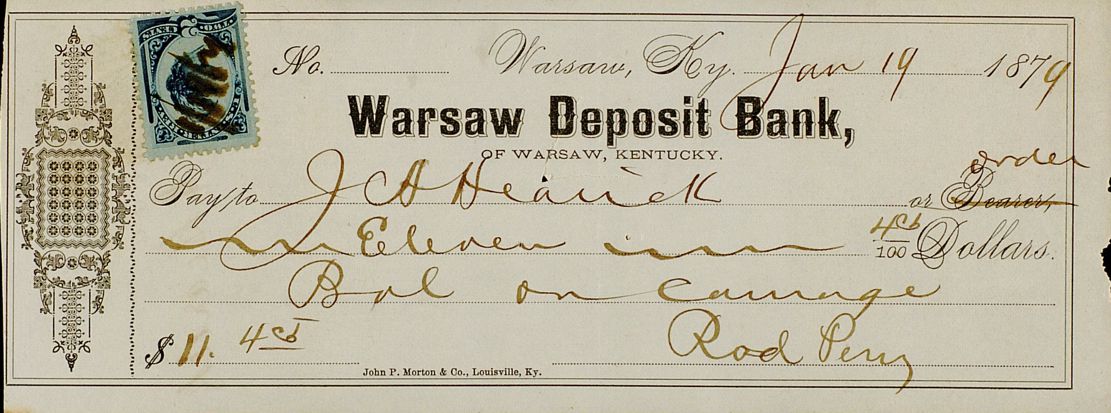 TWO CENTS
No.
Warsaw, Ky. Jan 19 1879
Warsaw Deposit Bank,
OF WARSAW, KENTUCKY.
order
Pay to J A Hearick or Bearer,
Eleven 45/100 Dollars.
Bal on Carriage
$ 11. 45
Rod Perry
John P. Morton & Co., Louisville, Ky.